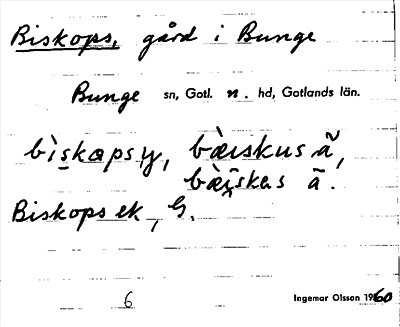 Biskops, gård i Bunge
Bunge sn, Gotl. n. hd, Gotlands län.
bìskapsy, bæ̀ıskus ã,
bæ̀ıskas ā.
Biskops ek, G.
6
Ingemar Olsson 1960